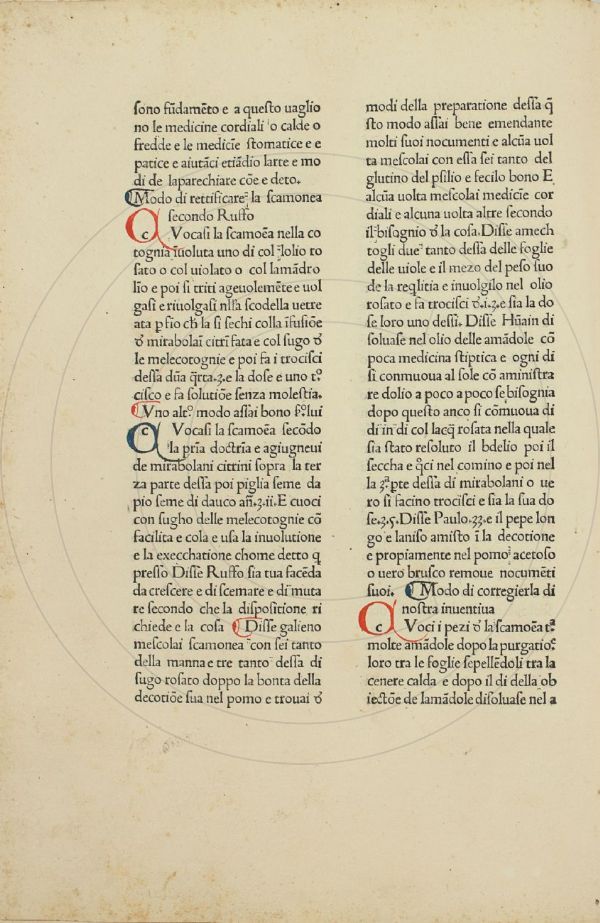 ſono fūdamēto e a queſto uaglio
no le medicine cordiali o calde o
fredde e le medicīe ſtomatice e e
patice e aiutāci etiādio larte e mo
di de laparechiare cōe e deto.
Modo di rettificare la ſcamonea
ſecondo Ruffo
c Vocaſi la ſcamoēa nella co
tognia īuoluta uno di col lolio ro
ſato o col uiolato o col lamādro
lio e poi ſi triti ageuolemēte e uol
gaſi e riuolgaſi nlla ſcodella uetre
ata pſio ch la ſi ſechi colla īfuſiōe
d mirabolaī citrī fata e col ſugo d
le melecotognie e poi fa i trociſci
deſſa dūa qrta.ʒ.e la doſe e uno t°
ciſco e fa ſolutiōe ſenza moleſtia.
Vno alt° modo aſſai bono ſ° lui
c Vocaſi la ſcamoēa ſecōdo
la pria doctrīa e agiugneui
de mirabolani citrini ſopra la ter
za parte deſſa poi piglia ſeme da
pio ſeme di dauco añ.ʒ.ii.E cuoci
con ſugho delle melecotognie cō
facilita e cola e uſa la inuolutione
e la execchatione chome detto q
preſſo Diſſe Ruffo ſia tua facēda
da creſcere e di ſcemare e di muta
re ſecondo che la diſpoſitione ri
chiede e la coſa Diſſe galieno
meſcolai ſcamonea con ſei tanto
della manna e tre tanto deſſa di
ſugo roſato doppo la bonta della
decotiōe ſua nel pomo e trouai d
modi della preparatione deſſa q̄
ſto modo aſſai bene emendante
molti ſuoi nocumenti e alcūa uol
ta meſcolai con eſſa ſei tanto del
glutino del pſilio e fecilo bono E
alcūa uolta meſcolai medicīe cor
diali e alcuna uolta altre ſecondo
il biſognio d la coſa. Diſſe amech
togli due tanto deſſa delle foglie
delle uiole e il mezo del peſo ſuo
de la reqlitia e inuolgilo nel olio
roſato e fa trociſci d.i.ʒ.e ſia la do
ſe loro uno deſſi. Diſſe Hūain di
ſoluaſe nel olio delle amādole cō
poca medicina ſtiptica e ogni di
ſi conmuoua al ſole cō aminiſtra
re dolio a poco a poco ſe biſognia
dopo queſto anco ſi cōmuoua di
di in di col lacq roſata nella quale
ſia ſtato reſoluto il bdelio poi il
ſeccha e qci nel comino e poi nel
la ʒª pte deſſa di mirabolani o ue
ro ſi facino trociſci e ſia la ſua do
ſe.ʒ.5. Diſſe Paulo.ʒʒ.e il pepe lon
go e laniſo amiſto ī la decotione
e propiamente nel pomo acetoſo
o uero bruſco remoue nocumēti
ſuoi. Modo di corregierla di
noſtra inuentiua
c Voci i pezi d la ſcamoēa t°
molte amādole dopo la purgatio°
loro tra le foglie ſepellēdoli tra la
cenere calda e dopo il di della ob
iectōe de lamādole diſoluaſe nel a